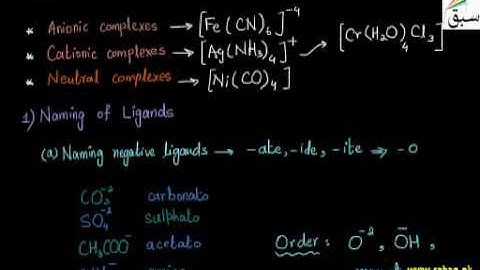 * Anionic complexes → [Fe(CN)₆]⁻⁴
* Cationic complexes → [Ag(NH₃)₄]⁺ → [Cr(H₂O)₄Cl₃]
* Neutral complexes → [Ni(CO)₄]
سبق
1) Naming of Ligands
(a) Naming negative ligands → -ate, -ide, -ite ⇒ -o
CO₃⁻² carbonato
SO₄⁻² sulphato
CH₃COO⁻ acetato
Order: O⁻², ŌH,